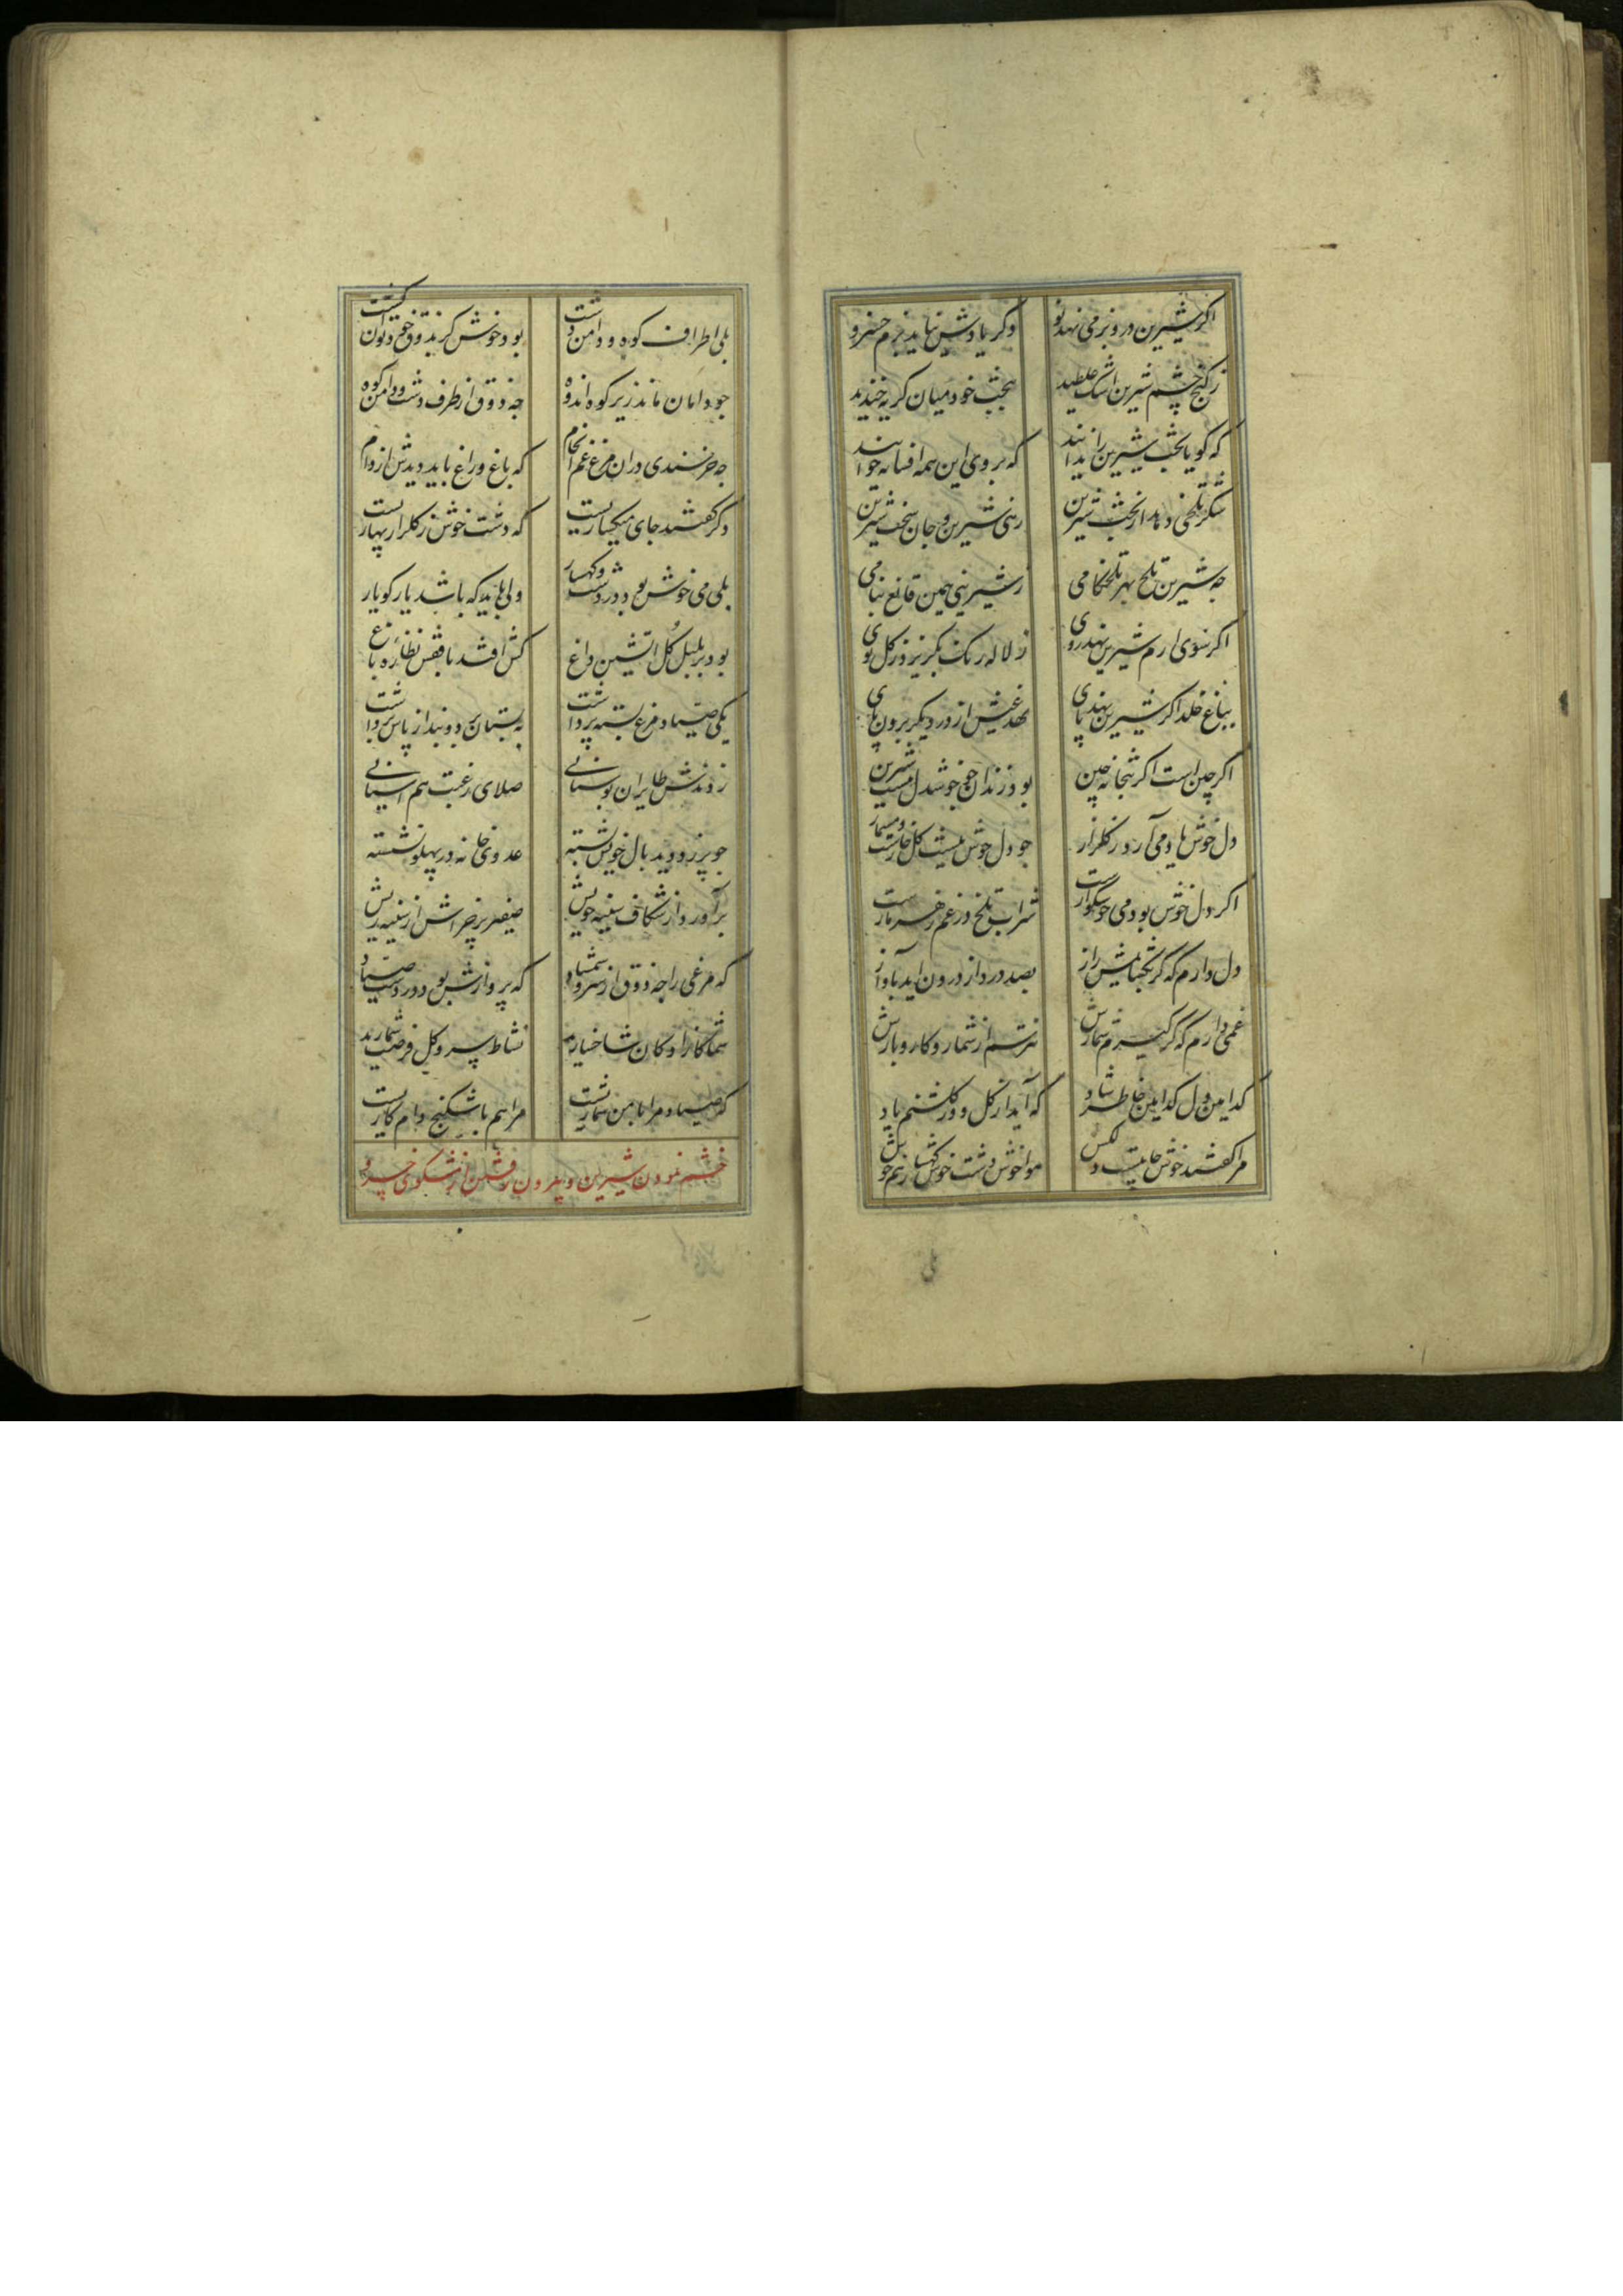 اگر شیرین در و بزمی نهد نو
وگر یادش نیاید بزم خسرو
ز کنج چشم شیرین اشک غلطید
ببخت خود میان گریه خندید
که گویا بخت شیرین را ندانند
که بر وی این همه افسانه خوانند
شکر تلخی دهد از بخت شیرین
زهی شیرین و جان سخت شیرین
چه شیرین تلخ بهر تلخکامی
ز شیرینی همین قانع بنامی
اگر سوی ارم شیرین نهد روی
ز لاله رنگ بگریزد ز گل بوی
بباغ خلد اگر شیرین نهد پای
نهد عیش از در دیگر برون پای
اگر چین است اگر بتخانه چین
بود زندان چو خوشدل نیست شیرین
دل خوش یاد می آرد ز گلزار
چو دل خوش نیست گل خارست و مسمار
اگر دل خوش بود می خوشگوارست
شراب تلخ در غم زهر مارست
دلی دارم که گر بگشایمش راز
بصد درد از درون آید بآواز
غمی دارم که گر گیرم شمارش
نترسم از شمار و کار و بارش
کدامین دل کدامین خاطر شاد
که آید از گل و از گلشنم یاد
مرا گفتند خوش جاییست دلکش
هوا خوش دشت خوش کهسار هم خوش
بلی اطراف کوه و دامن دشت
بود خوش گر بذوق خود توان گشت
چو دامان ماند زیر کوه اندوه
چه ذوق از طرف دشت و دامن کوه
چه خرسندی در آن مرغ غم انجام
که باغ و راغ باید دیدش از دام
دگر گفتند جای میگساریست
که دشت خوش ز گلزار بهاریست
بلی می خوش بود در دشت و کهسار
ولی باید که باشد یار گو یار
بود بر بلبل گل آتشین داغ
کش افتد با قفس نظاره باغ
یکی صیاد مرغ بسته پر داشت
به بستان برد و بند از پاش برداشت
زدندش طایران بوستانی
صلای رغبت هم آشیانی
چو پر زد دید بال خویش بسته
عدوی خانه در پهلو نشسته
برآورد از شکاف سینه خویش
صفیر پر خراش از سینه ریش
که مرغی را چه ذوق از سرو و شمشاد
که پروازش بود در دست صیاد
شما کازادگان شاخسارید
نشاط سرو و گل فرصت شمارید
که صیاد مرا با من شماریست
مرا هم با شکنج دام کاریست
خشم نمودن شیرین و بیرون رفتن از مشکوی خسرو